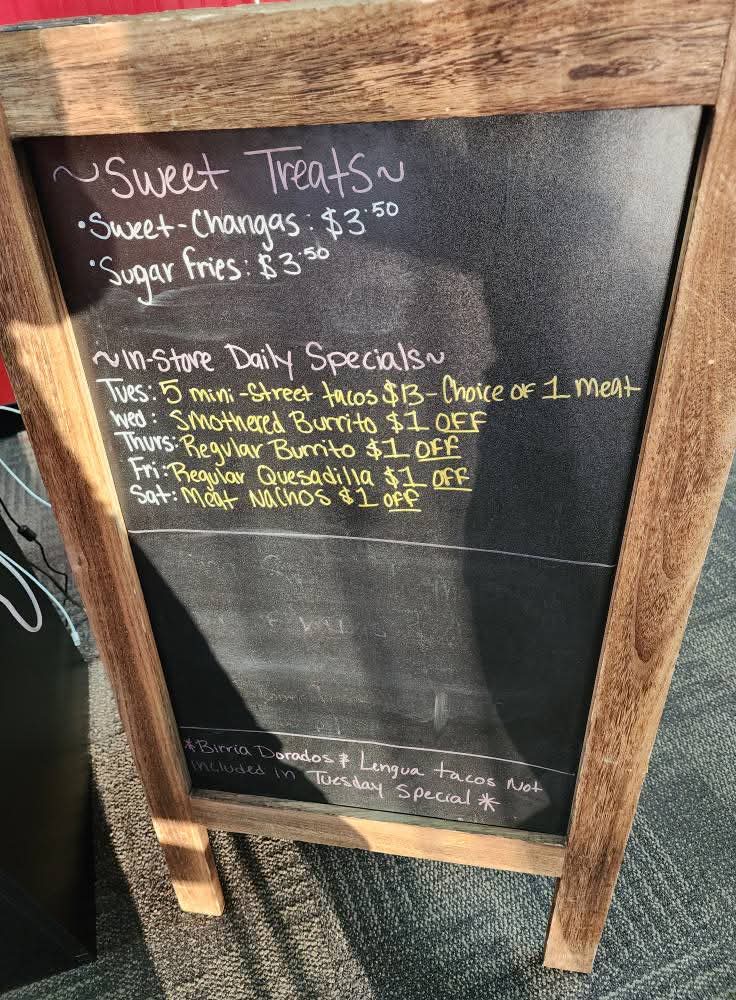 ~Sweet Treats~
• Sweet-Changas: $3.50
• Sugar fries: $3.50
~In-Store Daily Specials~
Tues: 5 mini-Street tacos $13 - Choice of 1 Meat
Wed: Smothered Burrito $1 OFF
Thurs: Regular Burrito $1 OFF
Fri: Regular Quesadilla $1 OFF
Sat: Meat Nachos $1 OFF
*Birria Dorados & Lengua tacos Not
included in Tuesday Special*